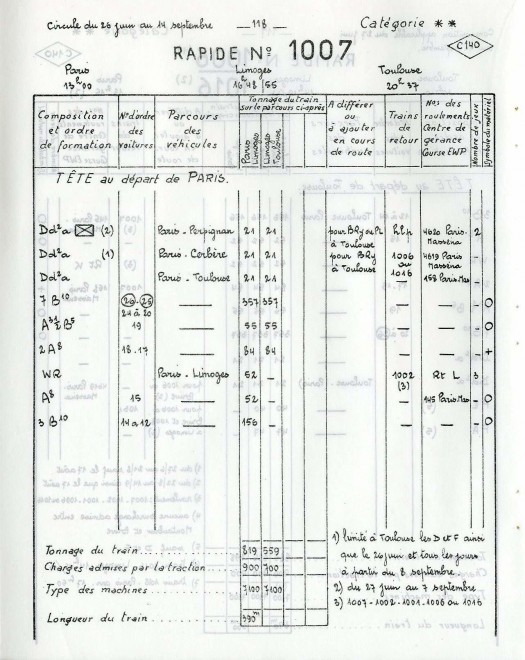 Circule du 26 juin au 14 septembre — 118 — Catégorie * *
C140
RAPIDE Nº 1007
Paris Limoges Toulouse
13h00 16h48|55 20h37
Composition et ordre de formation
Nºd'ordre des voitures
Parcours des véhicules
Tonnage du train sur le parcours ci-après
Paris Limoges
Limoges Toulouse
A différer ou à ajouter en cours de route
Trains de retour
Nos des roulements Centre de gérance Course EWP
Nombre de jeux
Symbole du matériel
TÊTE au départ de PARIS.
Dd²a (2) Paris - Perpignan 21 21 pour BRy ou PL à Toulouse RLp 4620 Paris-Masséna 2
Dd²a (1) Paris - Corbère 21 21 pour BRy à Toulouse 1006 ou 1016 4619 Paris Masséna
Dd²a Paris - Toulouse 21 21 — 158 Paris Mas —
7 B¹⁰ 26 - 25 24 à 20 — 357 357 — — — O
19 — 55 55 — — — O
2A⁸ 18.17 — 84 84 — — — +
WR Paris - Limoges 52 - 1002 (3) Rt L 3
A⁸ 15 — 52 - — 145 Paris Mas - O
3 B¹⁰ 14 à 12 — 156 - — — - O
Tonnage du train 819 559
Charges admises par la traction 900 700
Type des machines 7100 7100
Longueur du train 390m
1) limité à Toulouse les D et F ainsi
que le 26 juin et tous les jours
à partir du 8 septembre
2) du 27 juin au 7 septembre
3) 1007 - 1002 - 1001 - 1006 ou 1016